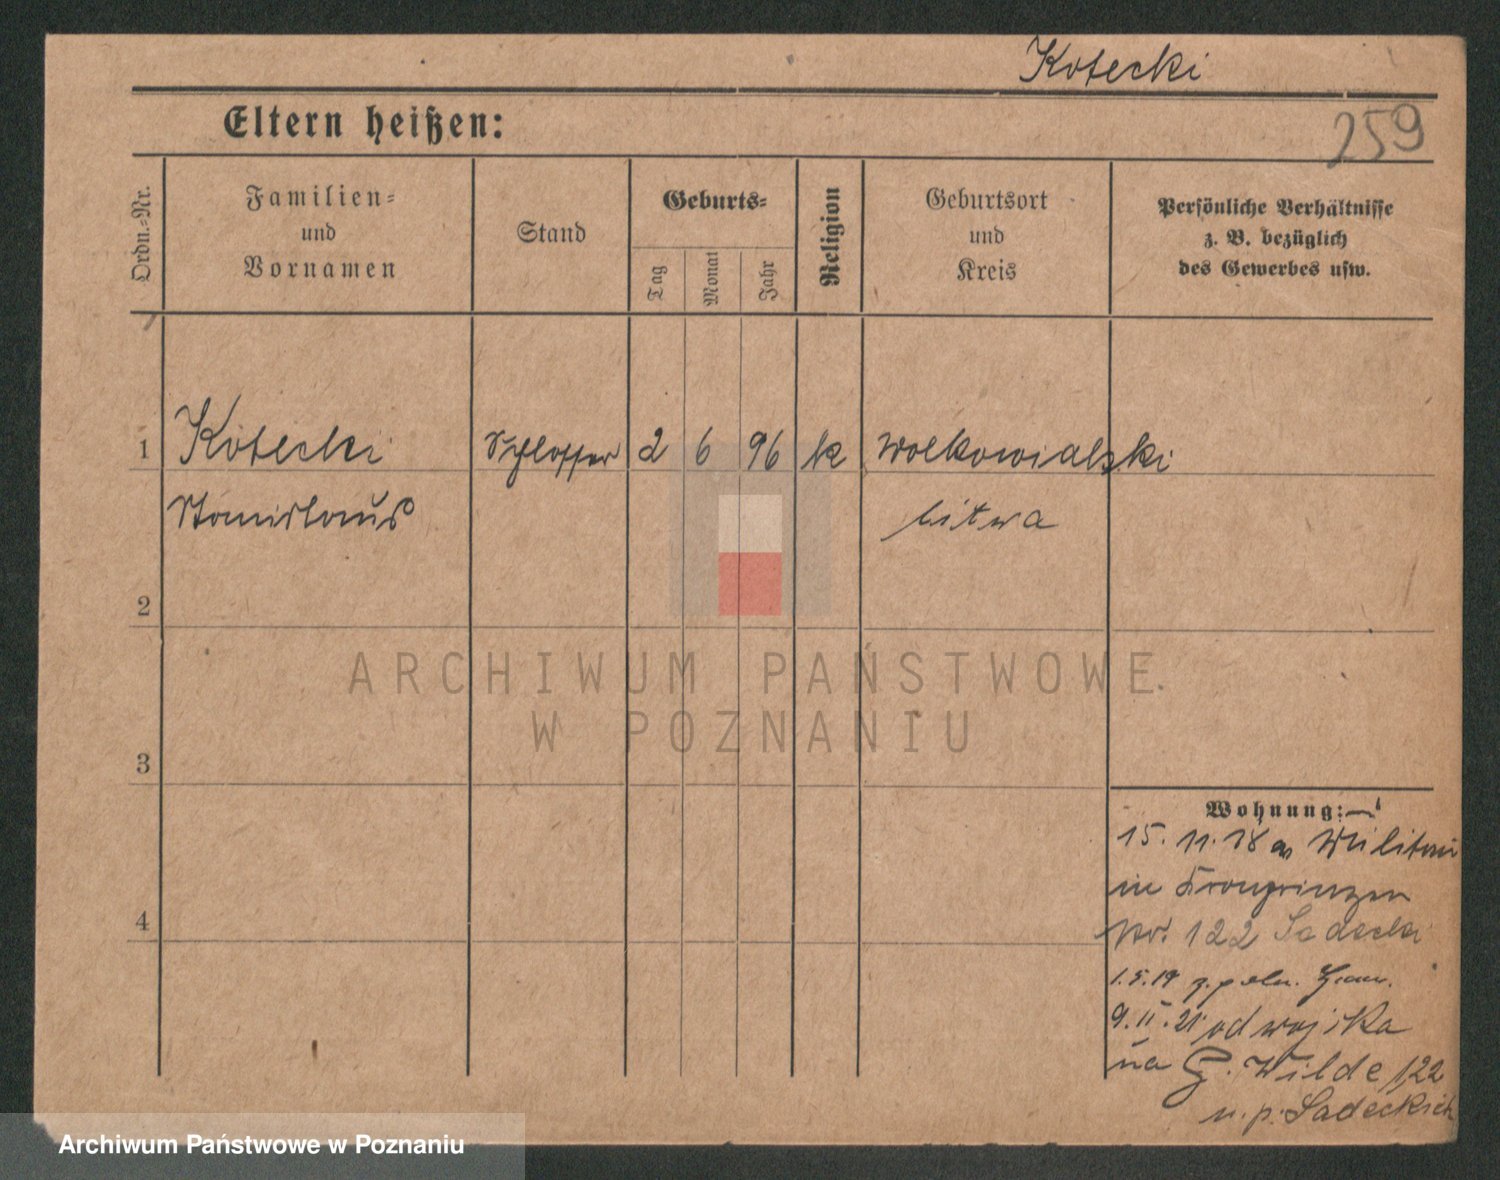 Kotecki
Eltern heißen:
259
Ordn.-Nr.
Familien-
und
Vornamen
Stand
Geburts-
Tag
Monat
Jahr
Religion
Geburtsort
und
Kreis
Persönliche Verhältnisse
z. B. bezüglich
des Gewerbes usw.
1 Kotecki Schlosser 2 6 96 k Wolkowialski
Stanislaus Litwa
2
ARCHIWUM PAŃSTWOWE
W POZNANIU
3
Wohnung:
15. 11. 18 Militär
in Kronprinzen
Nr. 122 Sadecki
4
1.5.19 z. poln.
9.II.21 od wojska
na G. Wilde 122
u. p. Sadeckich
Archiwum Państwowe w Poznaniu